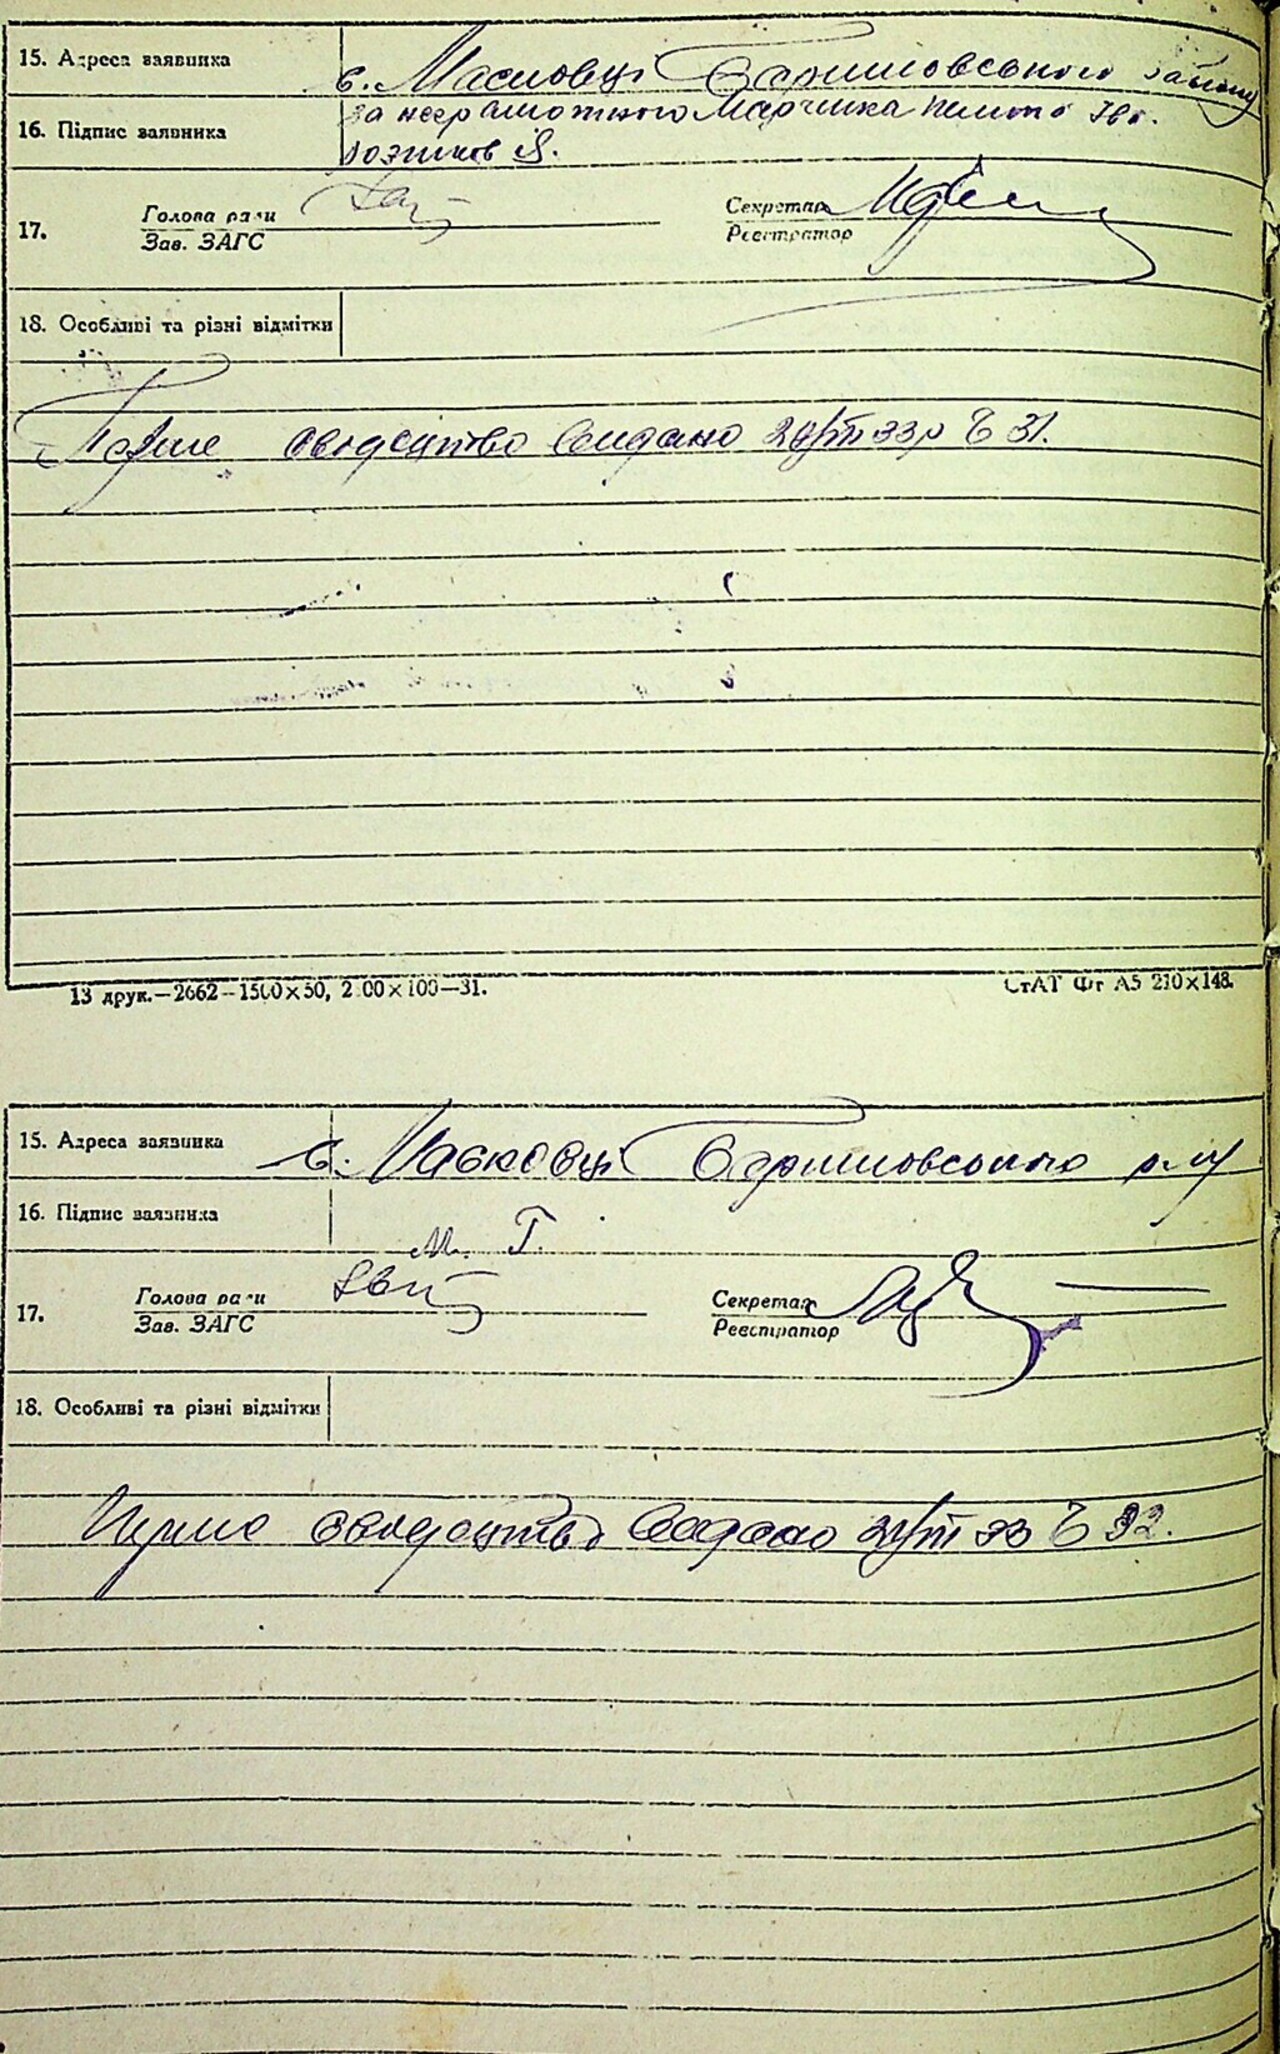 15. Адреса заявника с. Масковці Баришовського району
16. Підпис заявника за неграмотного Марченка
17. Голова ради Секретар
Зав. ЗАГС Реєстратор
18. Особливі та різні відмітки
Перше свидоцтво видано 33р Ч 31.
13 друк.—2662—1500×50, 2 00×100—31. СтАТ Фт А5 210×148.
15. Адреса заявника с. Масковці Баришовського р-ну
16. Підпис заявника М. Г.
17. Голова ради Секретар
Зав. ЗАГС Реєстратор
18. Особливі та різні відмітки
Перше свидоцтво видано 33 Ч 32.